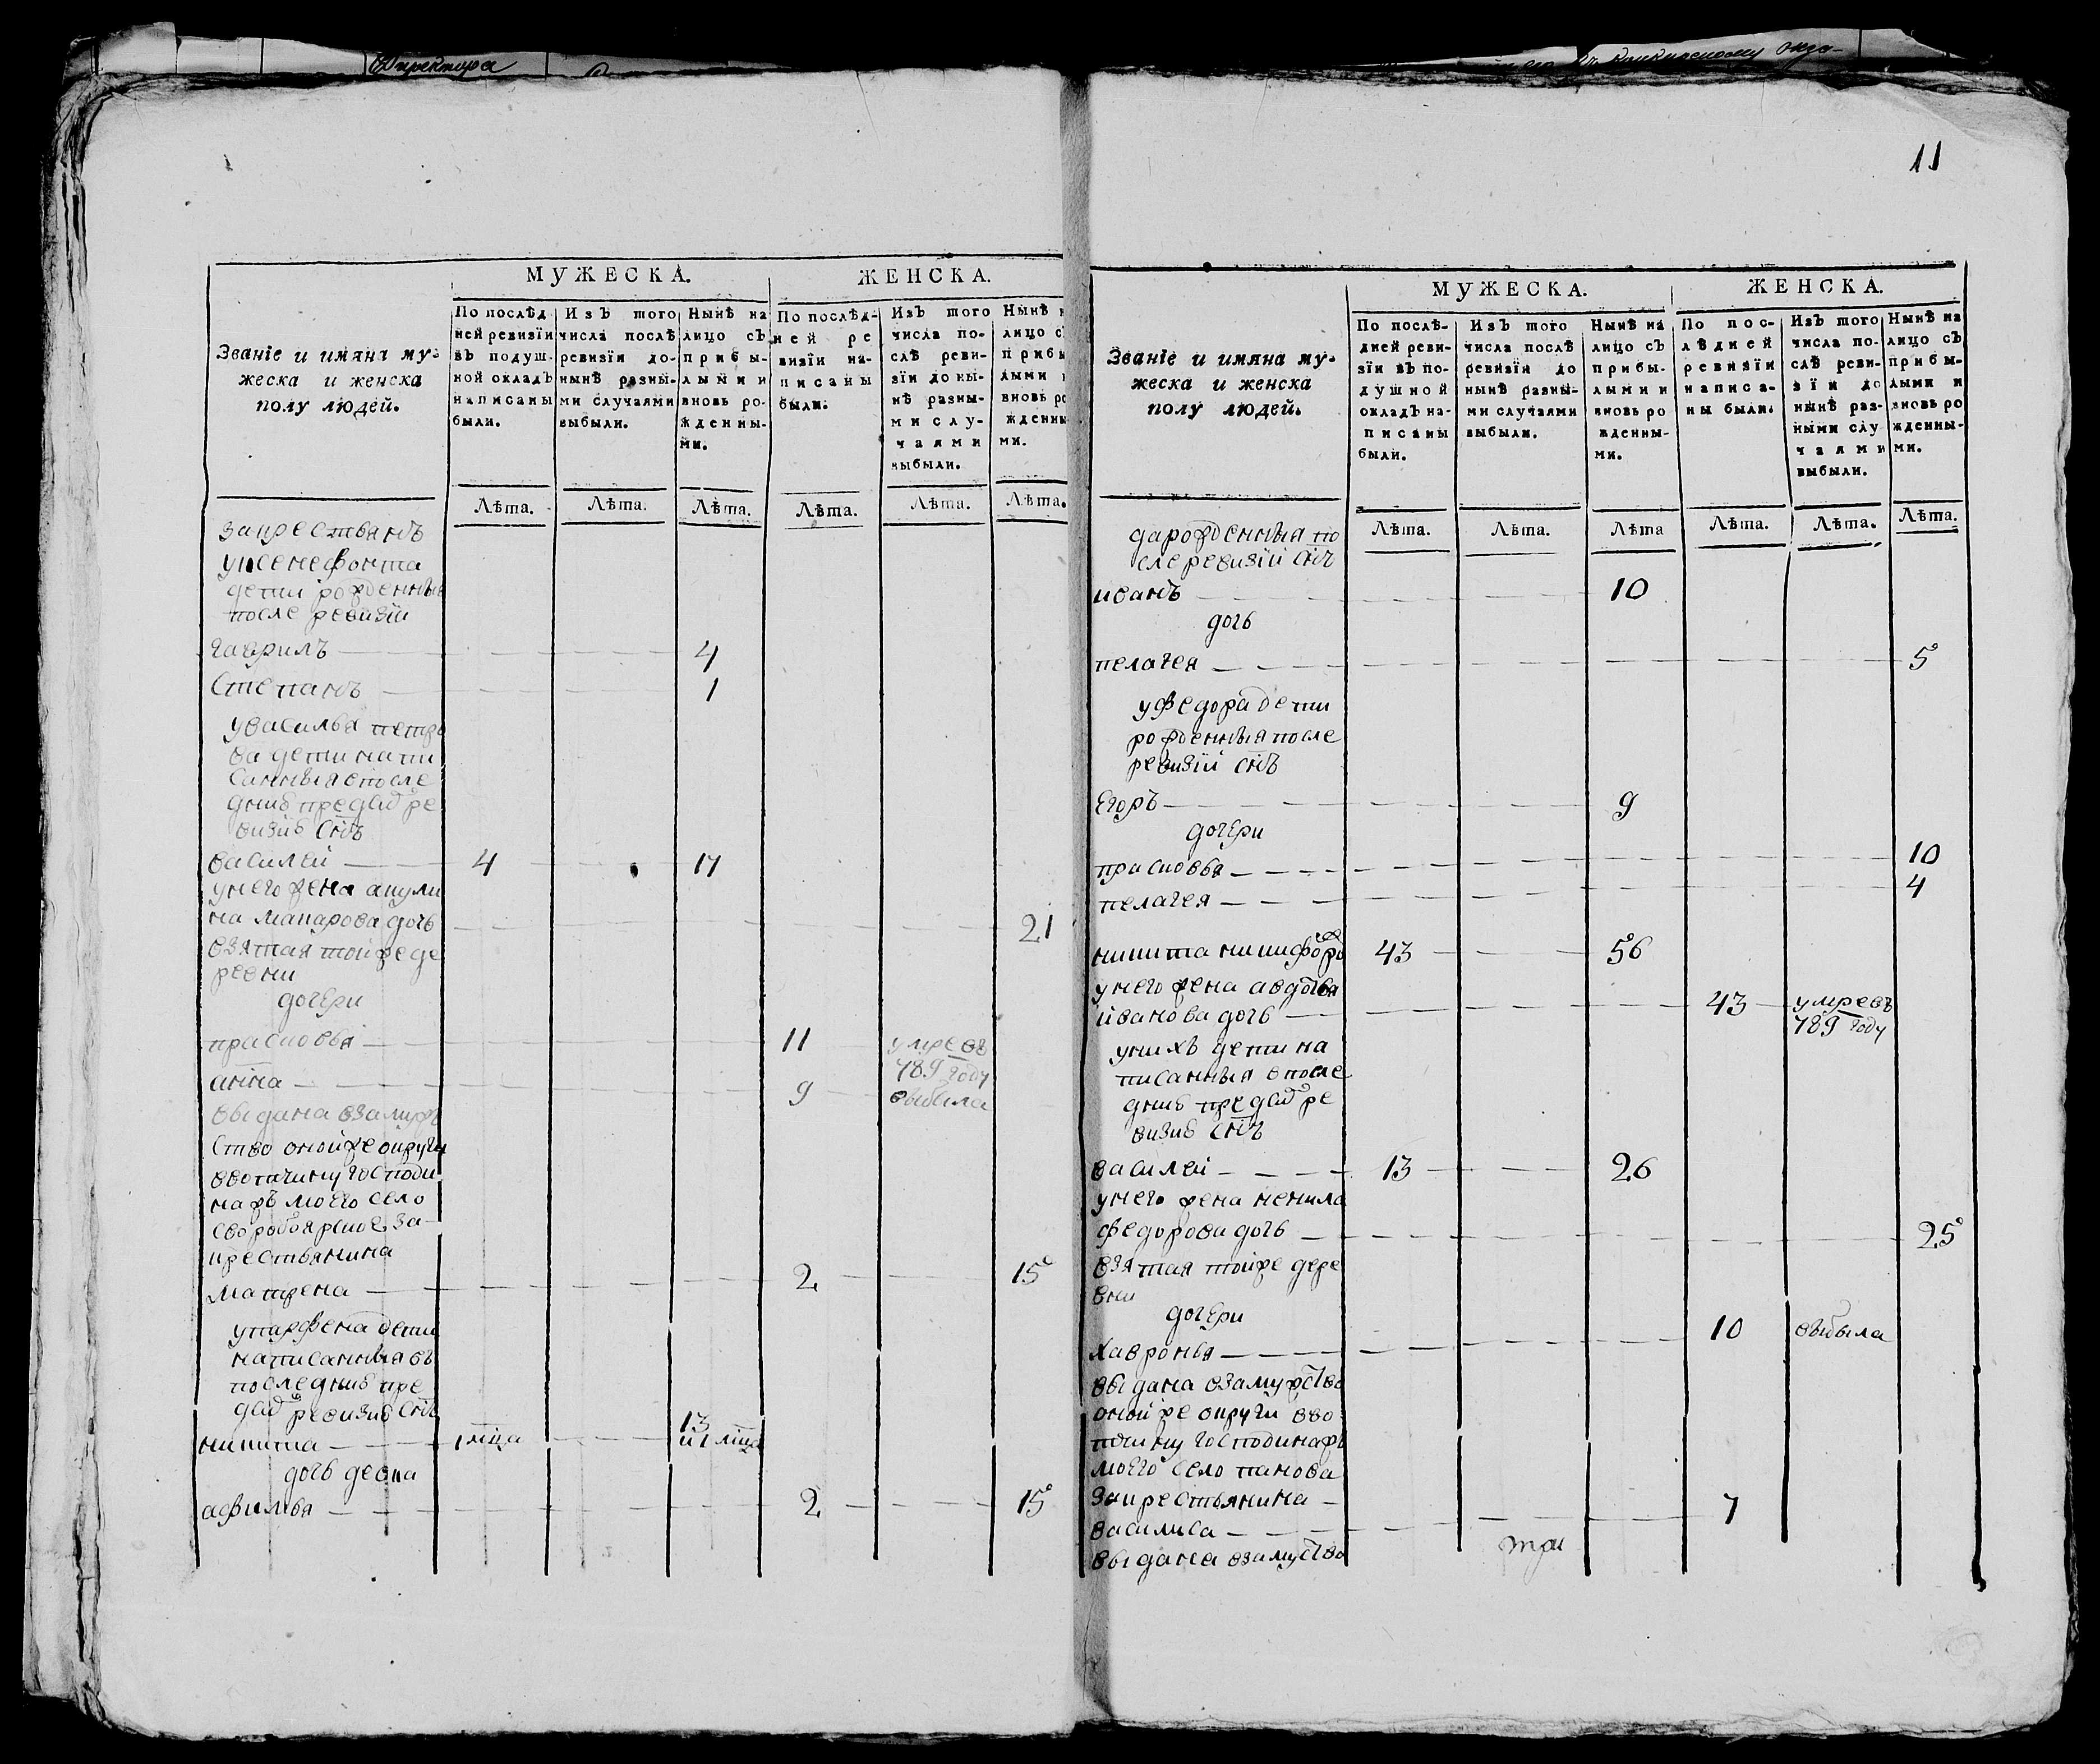 Директора
11
МУЖЕСКА.
ЖЕНСКА.
Званіе и имяна му-
жеска и женска
полу людей.
По послѣд
ней ревизїи
въ подуш-
ной окладъ
написаны
были.
Изъ того
числа послѣ
ревизїи до-
нынѣ разны-
ми случаями
выбыли.
Нынѣ на
лицо съ
прибы-
лыми и
вновь ро-
жденны-
ми.
По послѣд-
ней ре
визїи на-
писаны
были.
Изъ того
числа по-
слѣ реви-
зїи до ны-
нѣ разны-
ми слу-
чаями
выбыли.
Нынѣ
лицо с
прибы
лыми
вновь ро
жденны
ми.
Лѣта. Лѣта. Лѣта. Лѣта. Лѣта. Лѣта.
запрестьянъ
уксенефонта
дети рожденныя
после ревизїи
гаврилъ 4
Степанъ 1
увасилья петро
ва дети напи
санныя впосле
дниѣ пред сей ре
визиѣ снъ
василей 4 17
унего жена акули
на макарова дочь 21
взятая тойже де
ревни
дочери
прасковья 11 умре въ
789 году
анна 9 выбыла
выдана взамуж
ство онойже округи
ввотчину господи
на ж моего село
запрестьянина
матрена 2 15
упарфена дети
написанныя въ
последниѣ пре
ревизиѣ снъ
никита 1 мца 13
и 1 мца
дочь девка
афимья 2 15
МУЖЕСКА.
ЖЕНСКА.
Званіе и имяна му-
жеска и женска
полу людей.
По послѣ-
дней реви-
зїи въ по-
душной
окладъ на-
писаны
были.
Изъ того
числа послѣ
ревизїи до
нынѣ разны-
ми случаями
выбыли.
Нынѣ на
лицо съ
прибы-
лыми и
вновь ро
жденны-
ми.
По пос-
лѣдней
ревизїи
написа-
ны были.
Изъ того
числа по-
слѣ реви-
зїи до
нынѣ раз-
ными слу
чаями
выбыли.
Нынѣ на
лицо съ
прибы-
лыми и
вновь ро
жденны-
ми.
Лѣта. Лѣта. Лѣта Лѣта. Лѣта. Лѣта.
дарожденныя по
сле ревизїи снъ
иванъ 10
дочь
пелагея 5
уфедора дети
рожденныя после
ревизїи снъ
Егоръ 9
дочери
прасковья 10
пелагея 4
никита никифоро 43 56
унего жена авдотья
иванова дочь 43 умре въ
789 году
унихъ дети на
писанныя впосле
дниѣ пред сей ре
визиѣ снъ
василей 13 26
унего жена ненила
федорова дочь 25
взятая тойже дере
вни
дочери
хавронья 10 выбыла
выдана взамужство
онойже округи вво
тчину господина ж
моего село панова
запрестьянина
василиса 7
выдана взамуство